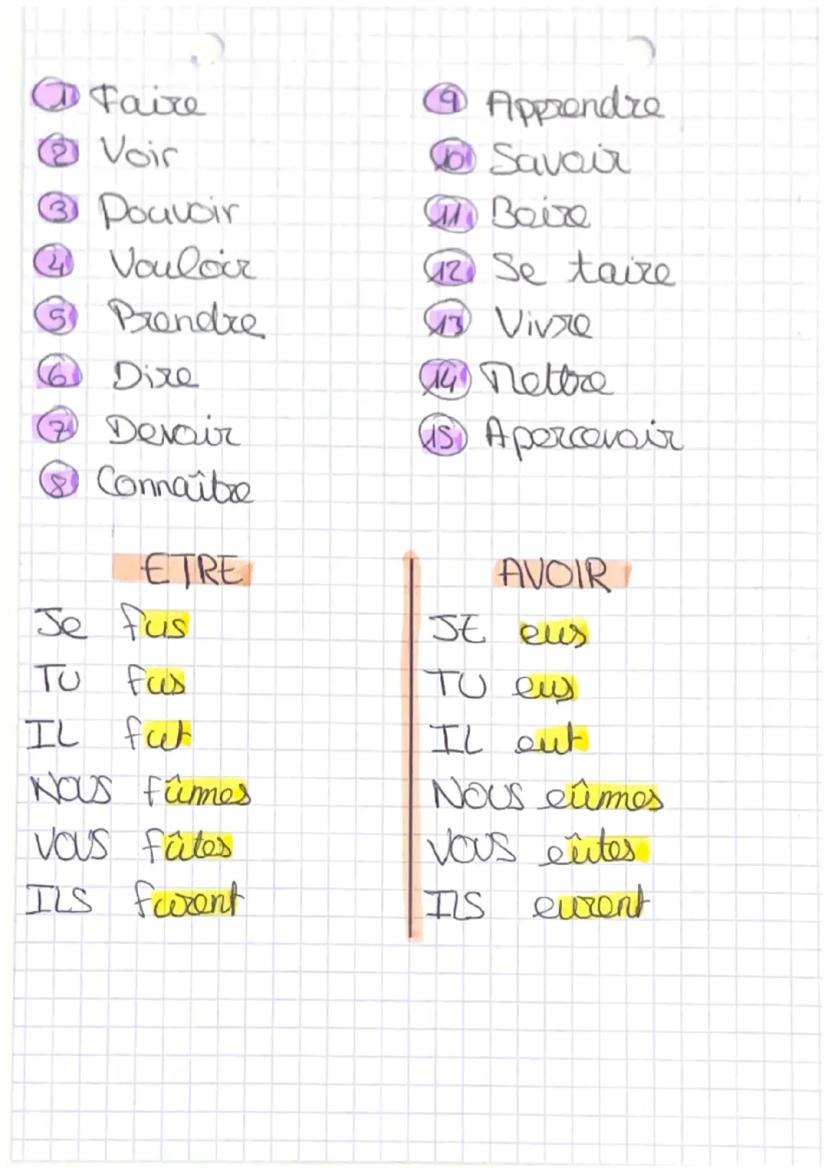 1 Faire
2 Voir
3 Pouvoir
4 Vouloir
5 Prendre
6 Dire
7 Devoir
8 Connaître
9 Apprendre
10 Savoir
11 Boire
12 Se taire
13 Vivre
14 Mettre
15 Apercevoir
ETRE
Je fus
TU fus
IL fut
NOUS fûmes
VOUS fûtes
ILS furent
AVOIR
JE eus
TU eus
IL eut
NOUS eûmes
VOUS eûtes
ILS eurent